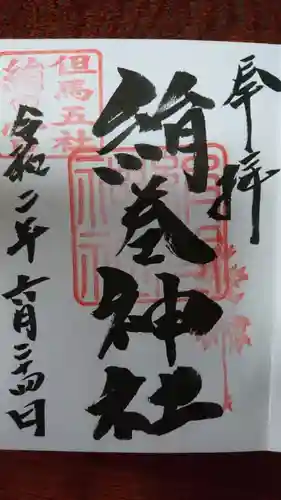 奉拝
絹巻神社
令和二年六月二十四日
但馬五社
絹巻宮